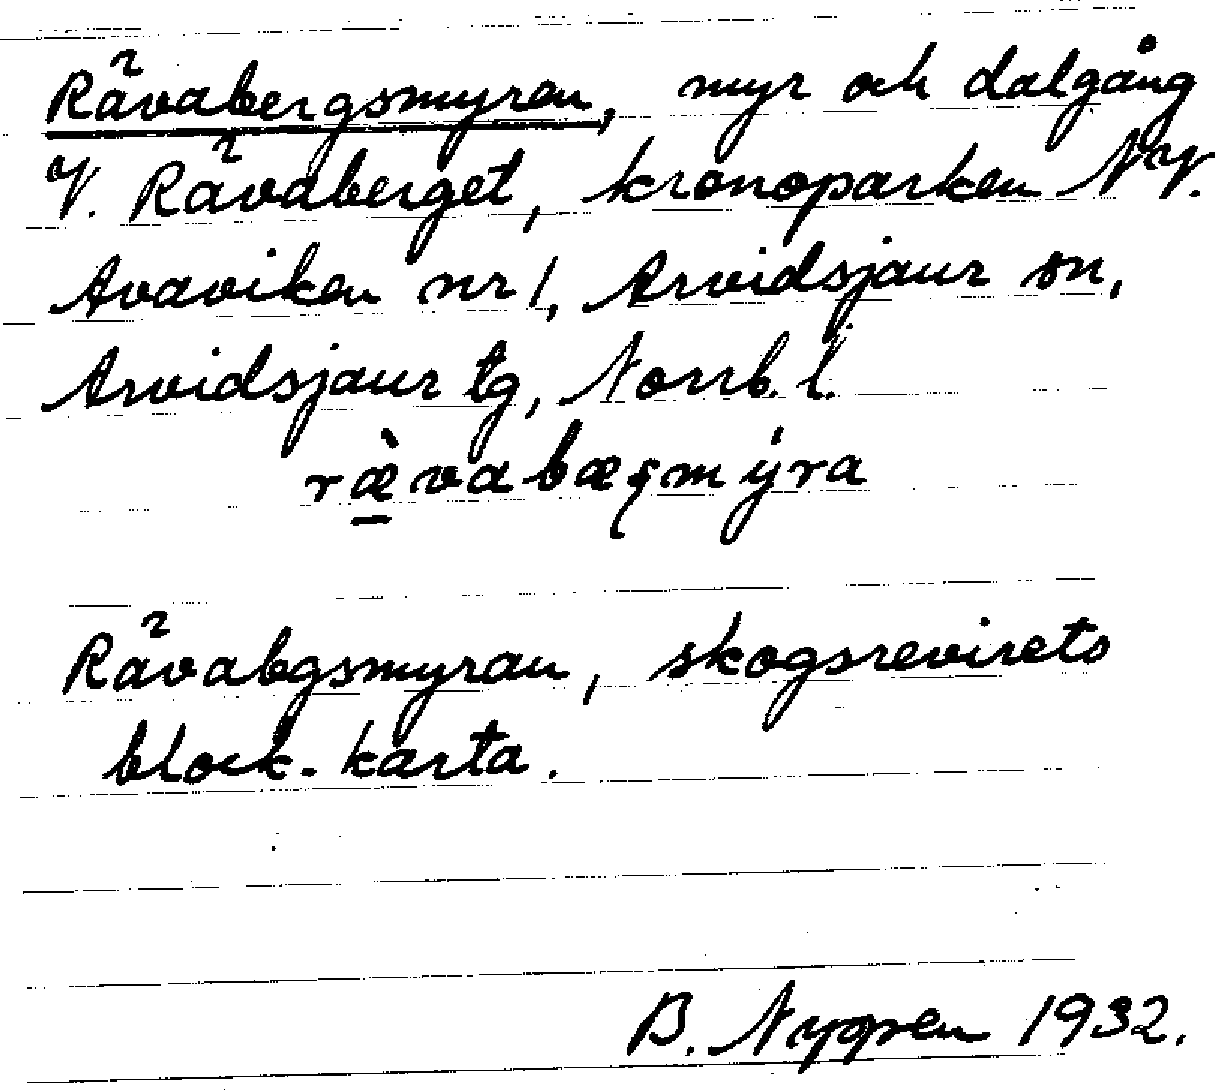 Rävabergsmyran, myr och dalgång
V. Rävaberget, kronoparken NV.
Avaviken nr 1, Arvidsjaur sn,
Arvidsjaur tg, Norrb. l.
ræ̀vabæşmýra
Rävabgsmyran, skogsrevirets
block-karta.
B. 1932.